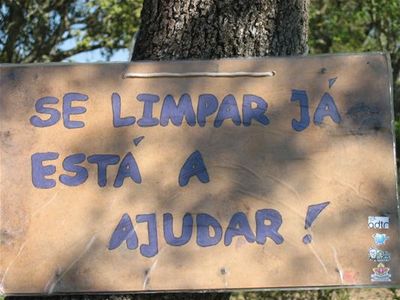 SE LIMPAR JÁ
ESTÁ A
AJUDAR!